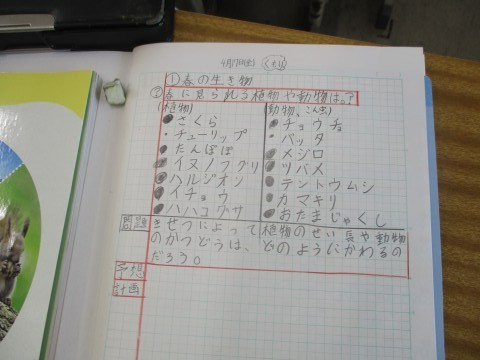 4月27日(土) くもり
①春の生き物
②春に見られる植物や動物は。?
(植物) (動物、こん虫)
さくら チョウチョ
・チューリップ ・バッタ
たんぽぽ メジロ
イヌノフグリ ツバメ
ハルジオン テントウムシ
イチョウ カマキリ
ハハコグサ おたまじゃくし
問題 きせつによって植物のせい長や動物
のかつどうは、どのようにかわるの
だろう。
予想
計画